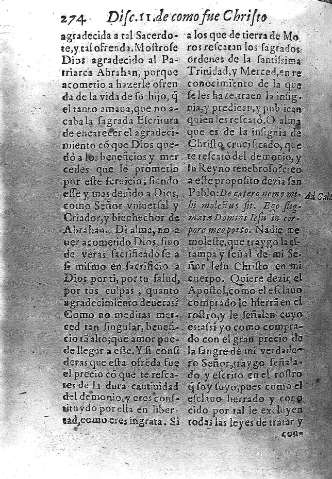 274 Disc. 11. de como fue Christo
agradecida a tal Sacerdo-
te, y tal ofrenda. Mostrose
Dios agradecido al Pa-
triarca Abrahan, porque
acometio a hazerle ofren
da de la vida de su hijo, q̃
el tanto amaua, que no a-
caba la sagrada Escritura
de encarecer el agradeci-
miento cõ que Dios que-
dó a los beneficios y mer-
cedes que le prometio
por este seruicio, siendo
este, y mas deuido a Dios,
como Señor vniuersal y
Criador, y bienhechor de
Abrahan. Di alma, no a
uer acometido Dios, sino
de veras sacrificadose a
si mismo en sacrificio a
Dios por ti, por tu salud,
por tus culpas, quanto
agradecimiento deueras?
Como no meditas mer-
ced tan singular, benefi-
cio tã alto, que amor pue-
de llegar a este. Y si consi
deras que esta ofrẽda fue
el precio cõ que te resca-
tes de la dura cautiuidad
del demonio, y eres cons-
tituydo por ella en liber-
tad, como eres ingrata. Si
a los que de tierra de Mo
ros rescatan los sagrados
ordenes de la santissima
Trinidad, y Merced, en re
conocimiento de la que
se les haze, traen la insig-
nia, y predican, y publican
quien les rescató. O alma
que es de la insignia de
Christo crucificado, que
te rescató del demonio, y
su Reyno tenebroso: cerca
a este proposito dezia san
Pablo: De cætero nemo mi-
hi molestus sit. Ego stig-
mata Domini Iesu in cor-
pore meo porto. Nadie me
moleste, que traygo la es-
tampa y señal de mi Se
ñor Iesu Christo en mi
cuerpo. Quiere dezir el
Apostol, como el esclauo
comprado le hierra en el
rostro, y le señalan cuyo
es, assi yo como compra-
do con el gran precio de
la sangre de mi verdade-
ro Señor, traygo señala-
do y escrito en el rostro
q̃ soy suyo, pues como el
esclauo herrado y cono-
cido por tal le excluyen
todas las leyes de tratar y
con-
Ad Gala.